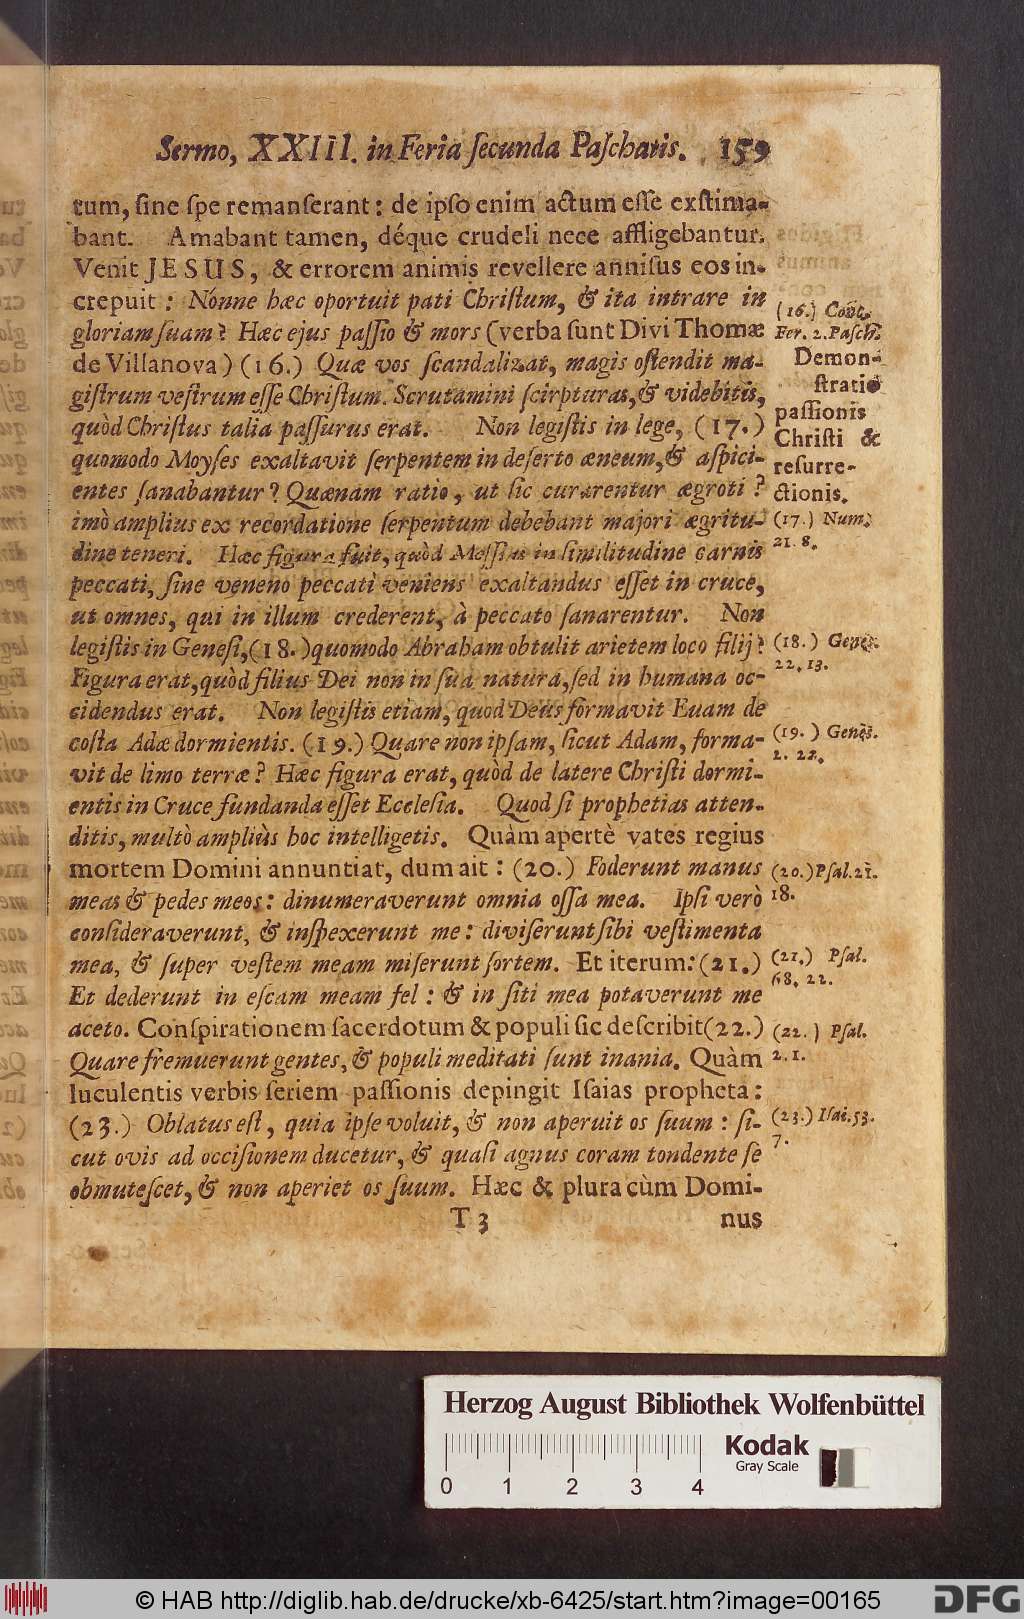 Sermo, XXIII. in Feria ſecunda Paſchatis. 159
tum, ſine ſpe remanſerant: de ipſo enim actum eſſe exſtima-
bant. Amabant tamen, déque crudeli nece affligebantur.
Venit JESUS, & errorem animis revellere anniſus eos in-
crepuit: Nónne hæc oportuit pati Chriſtum, & ita intrare in
gloriam ſuam? Hæc ejus paſſio & mors (verba ſunt Divi Thomæ
de Villanova) (16.) Quæ vos ſcandalizat, magis oſtendit ma-
giſtrum veſtrum eſſe Chriſtum. Scrutamini ſcirpturas, & videbitis,
quòd Chriſtus talia paſſurus erat. Non legiſtis in lege, (17.)
quomodo Moyſes exaltavit ſerpentem in deſerto æneum, & aſpici-
entes ſanabantur? Quænam ratio, ut ſic curarentur ægroti?
imò amplius ex recordatione ſerpentum debebant majori ægritu-
dine teneri. Hæc figura fuit, quòd Meſſias in ſimilitudine carnis
peccati, ſine veneno peccati veniens exaltandus eſſet in cruce,
ut omnes, qui in illum crederent, à peccato ſanarentur. Non
legiſtis in Geneſi, (18.) quomodo Abraham obtulit arietem loco filij?
Figura erat, quòd filius Dei non in ſua natura, ſed in humana oc-
cidendus erat. Non legiſtis etiam, quod Deus formavit Euam de
coſta Adæ dormientis. (19.) Quare non ipſam, ſicut Adam, forma-
vit de limo terræ? Hæc figura erat, quòd de latere Chriſti dormi-
entis in Cruce fundanda eſſet Eccleſia. Quod ſi prophetias atten-
ditis, multò ampliùs hoc intelligetis. Quàm apertè vates regius
mortem Domini annuntiat, dum ait: (20.) Foderunt manus
meas & pedes meos: dinumeraverunt omnia oſſa mea. Ipſi verò
conſideraverunt, & inſpexerunt me: diviſerunt ſibi veſtimenta
mea, & ſuper veſtem meam miſerunt ſortem. Et iterum: (21.)
Et dederunt in eſcam meam fel: & in ſiti mea potaverunt me
aceto. Conſpirationem ſacerdotum & populi ſic deſcribit (22.)
Quare fremuerunt gentes, & populi meditati ſunt inania. Quàm
luculentis verbis ſeriem paſſionis depingit Iſaias propheta:
(23.) Oblatus eſt, quia ipſe voluit, & non aperuit os ſuum: ſi-
cut ovis ad occiſionem ducetur, & quaſi agnus coram tondente ſe
obmuteſcet, & non aperiet os ſuum. Hæc & plura cùm Domi-
T 3 nus
(16.) Conc.
Fer. 2. Paſch.
Demon-
ſtratio
paſſionis
Chriſti &
reſurre-
ctionis.
(17.) Num.
21. 8.
(18.) Geneſ.
22. 13.
(19.) Geneſ.
2. 22.
(20.) Pſal. 21.
18.
(21.) Pſal.
68. 22.
(22.) Pſal.
2. 1.
(23.) Iſai. 53.
7.
Herzog August Bibliothek Wolfenbüttel
Kodak
Gray Scale
0 1 2 3 4
© HAB http://diglib.hab.de/drucke/xb-6425/start.htm?image=00165
DFG